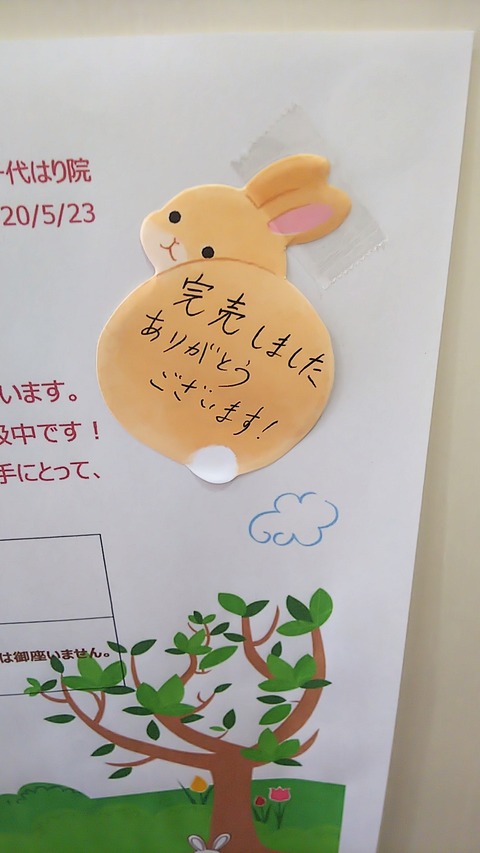 代はり院
20/5/23
完売しました
ありがとう
ございます!
います。
中です!
手にとって、
は御座いません。